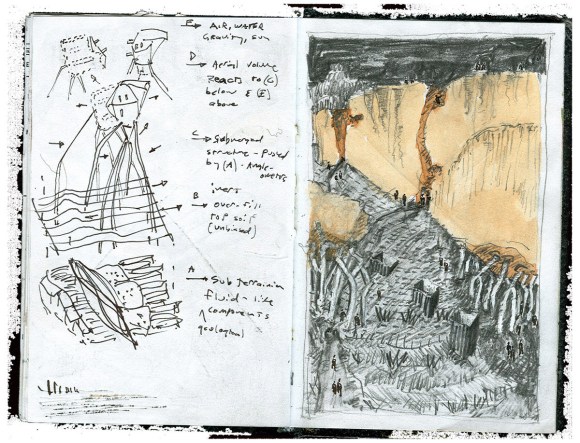 E → AIR, WATER
GRAVITY, SUN
D → Aerial volume
reacts to (C)
below & (E)
above
C → Submerged
structure - Pushed
by (A) -
B → over-fill
top soil
A → Sub terrainian
fluid-like
components
geological